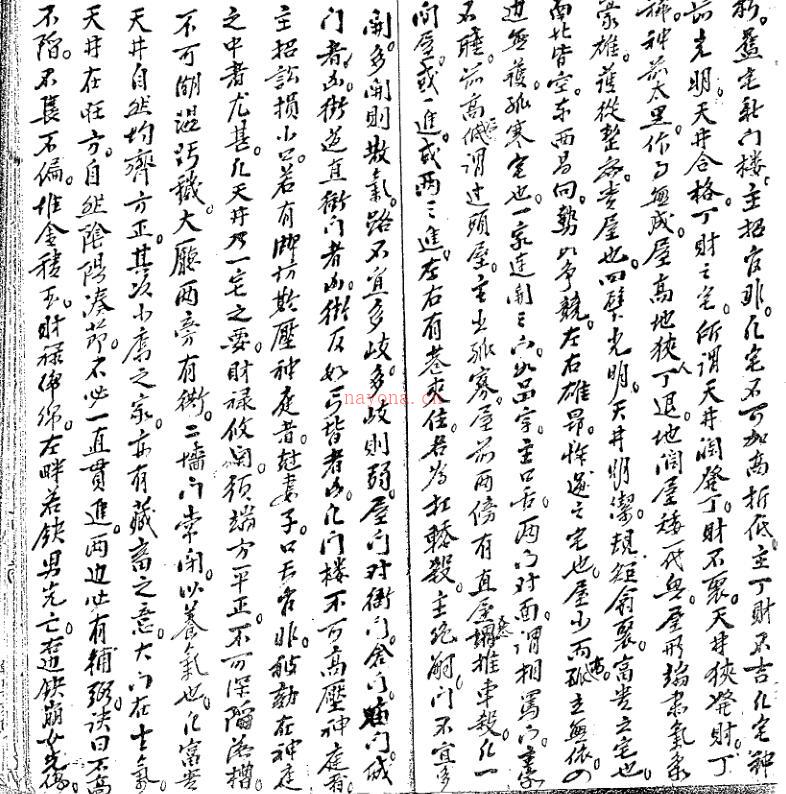 朽。蓋宅新門楼。主招官非。凡宅不可加高折低。主丁財不吉。凡宅神
前光明。天井合格。丁財之宅。所謂天井闊發丁。財不聚。天井狹發財。丁
神前太黑。作事無成。屋高地狹人丁退。地闊屋矮一代。屋形端肅氣象
豪雄。護從整齊貴屋也。四壁光明。天井明潔。規矩翕聚。富貴之宅也。
南北皆空。東西昌向。勢以爭競。左右雄昂。忤逆之宅也。屋少而孤主無依。四
边無護。孤寒宅也。一家連開三门如品字。主口舌。两门对面。謂相罵门。主家
不睦。前高低謂过頭屋。主出孤寡。屋前两傍有直屋謂推車殺。凡一
间屋。或一進。或两三進。左右有巷來住者为扛轎殺。主絶嗣。门不宜多
開。多開則散氣。路不宜多歧。多歧則弱。屋门对衙门。倉门。廟门。城
门者凶。街道直衝门者凶。街反如弓背者凶。凡门楼不可高壓神庭者
主招訟損小口。若有脚坊欺壓神庭者。尅妻子。口舌官非。在神庭
之中者尤甚。凡天井乃一宅之要。財禄攸関。須端方平正。不可深陷落槽
不可潮濕污穢。大廳两旁有衖。二墻门常閉。以養氣也。凡富貴
天井自然均齊方正。其次小康之家。亦有藏畜之意。大门在生氣。
天井在旺方。自然陰陽湊節。不必一直貫進。两边必有輔弼。訣曰不高
不陷。不長不偏。堆金積玉。財禄綿綿。左畔若缺男先亡。右边缺崩女先傷。
nayona.cn